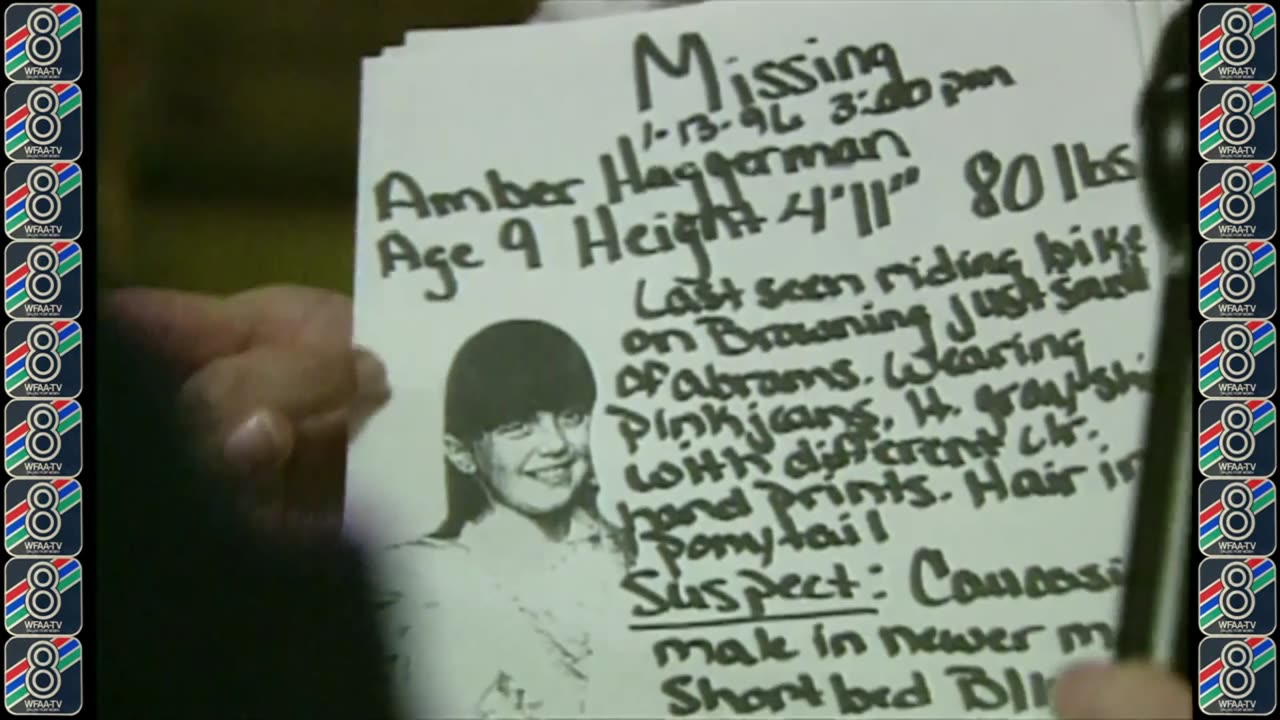 Missing
1-13-96 3:00 pm
Amber Haggerman
Age 9 Height 4'11" 80 lbs
Last seen riding bike
on Browning Just
of abrams. Wearing
pink jeans, lt. gray
with different clr.
hand prints. Hair in
ponytail
Suspect:
male in newer
Short bed
8
WFAA-TV
8
WFAA-TV
8
WFAA-TV
8
WFAA-TV
8
WFAA-TV
8
WFAA-TV
8
WFAA-TV
8
WFAA-TV
8
WFAA-TV
8
WFAA-TV
8
WFAA-TV
8
WFAA-TV
8
WFAA-TV
8
WFAA-TV
8
WFAA-TV
8
WFAA-TV
8
WFAA-TV
8
WFAA-TV